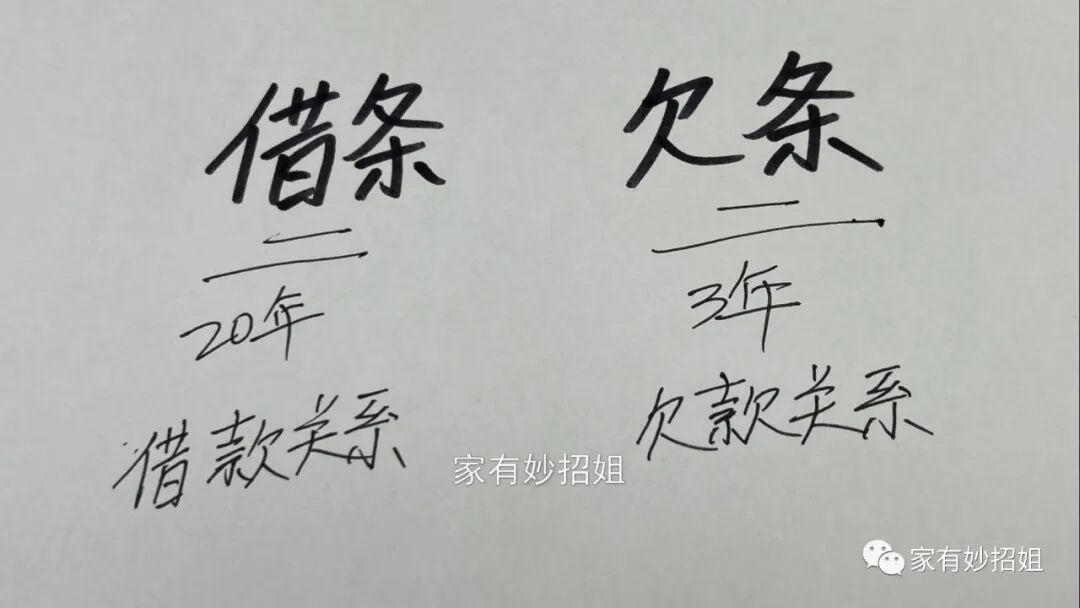 借条
欠条
20年
3年
借款关系
欠款关系
家有妙招姐
家有妙招姐